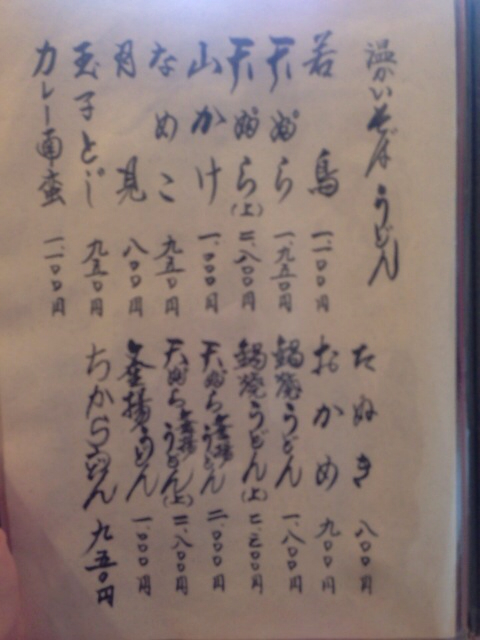 温かいそば うどん
若鳥 一、一〇〇円
天ぷら 一、九五〇円
天ぷら(上) 二、八〇〇円
山かけ 一、〇〇〇円
なめこ 九五〇円
月見 八〇〇円
玉子とじ 九五〇円
カレー南蛮 一、一〇〇円
たぬき 八〇〇円
おかめ 九〇〇円
鍋焼うどん 一、八〇〇円
鍋焼うどん(上) 二、三〇〇円
天ぷら釜揚うどん 二、〇〇〇円
天ぷら釜揚うどん(上) 二、八〇〇円
釜揚うどん 一、〇〇〇円
ちからうどん 九五〇円